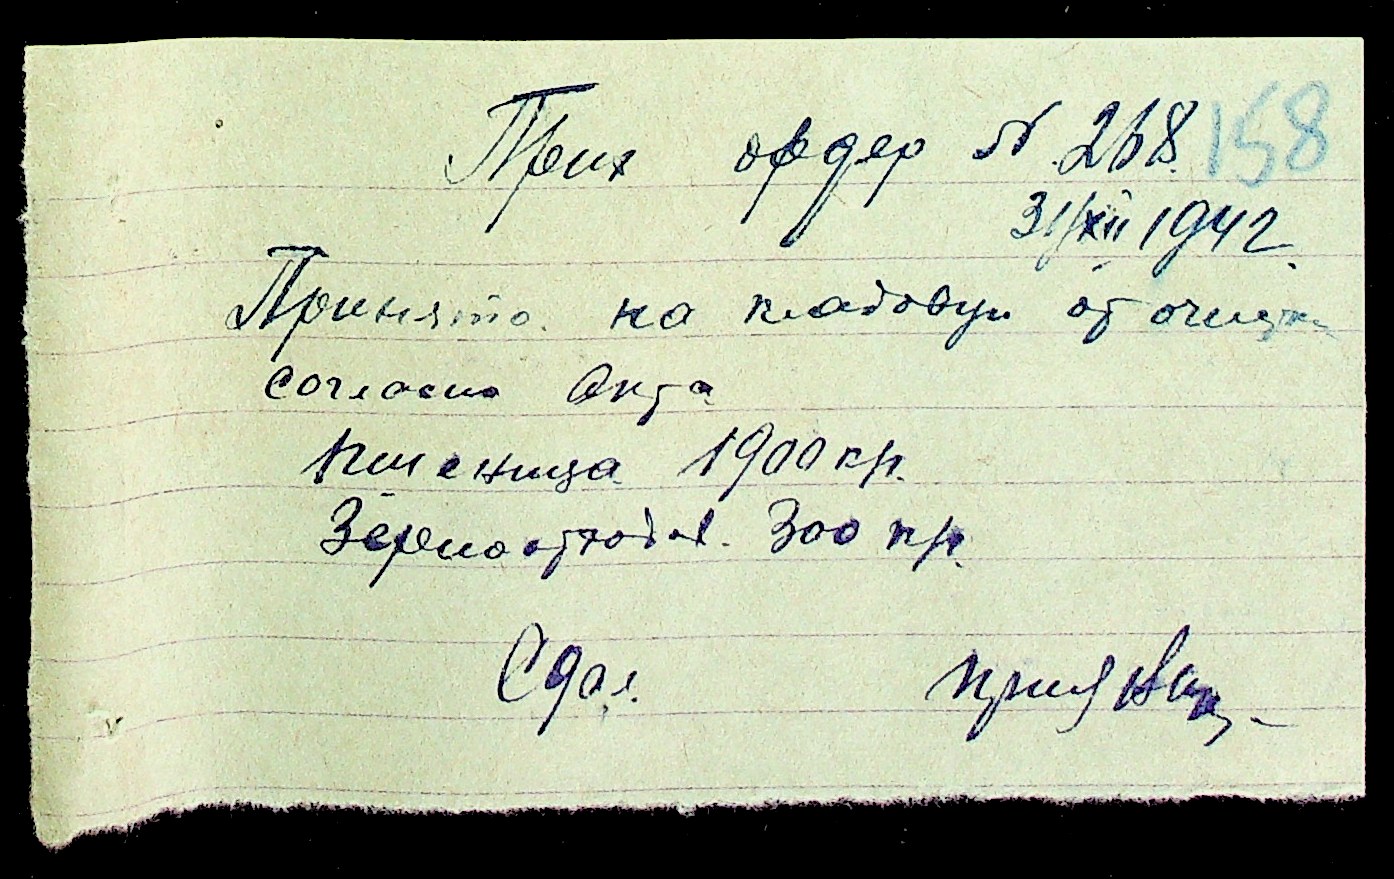 Прих ордер № 268. 158
31/XII 1942
Принято на кладовую от очистки
согласно Акта
пшеница 1900 кгр.
Зерноотходов. 300 кгр.
Сдал Принял